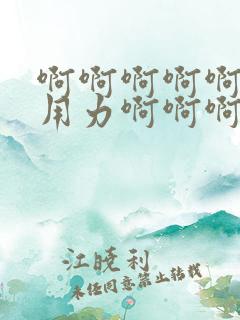 啊啊啊啊啊
用力啊啊啊
江晓利
未经同意禁止转载